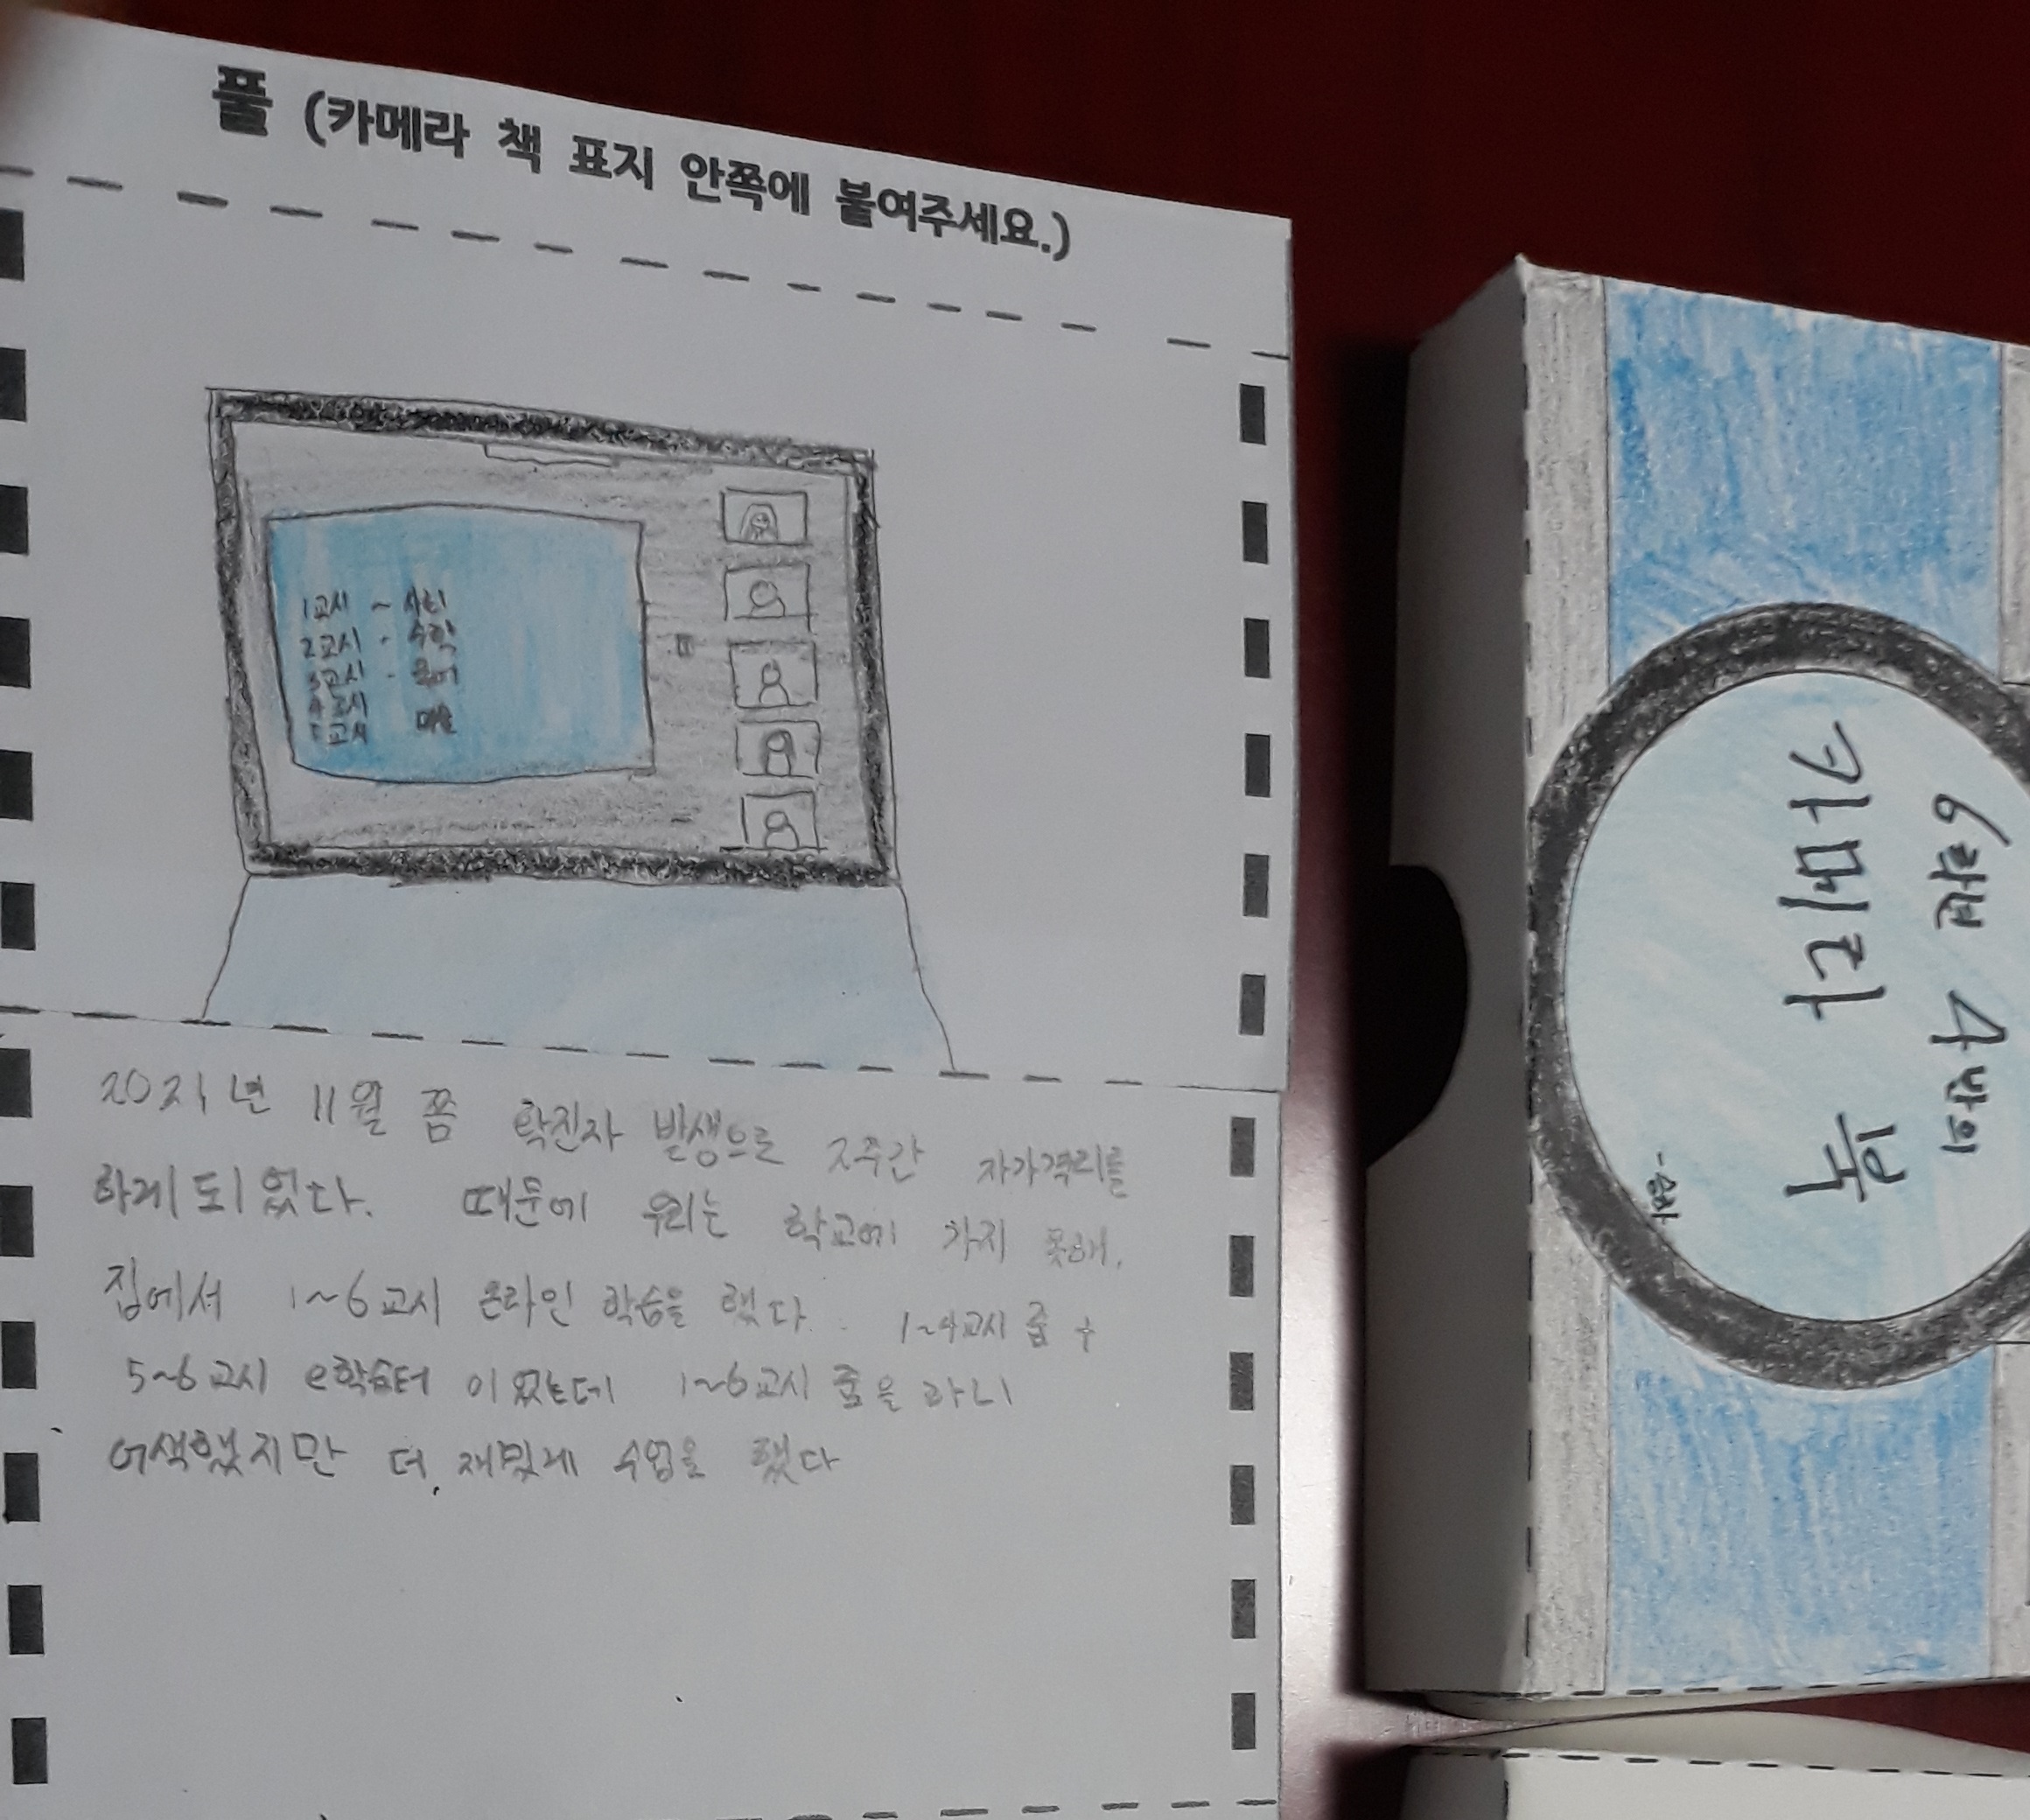 풀 (카메라 책 표지 안쪽에 붙여주세요.)
1교시 ~ 사회
2교시 - 수학
3교시 -
4교시
5교시 미술
2021년 11월 쯤 확진자 발생으로 2주간 자가격리를
하게 되었다. 때문에 우리는 학교에 가지 못해,
집에서 1~6교시 온라인 학습을 했다. 1~4교시 줌 +
5~6교시 e학습터 이었는데 1~6교시 줌을 하니
어색했지만 더 재밌게 수업을 했다
6학년 4반의
카메라 북